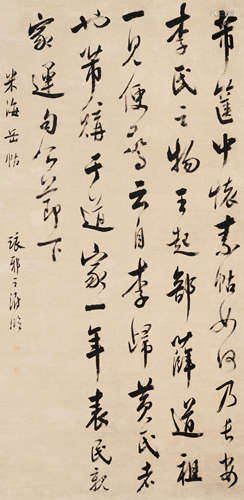 芾篋中懷素帖如何乃長安
李氏之物王起部薛道祖
一見便驚云自李歸黃氏者
也芾購于道家一年表民親
家運句公節下
米海岳帖 琅邪